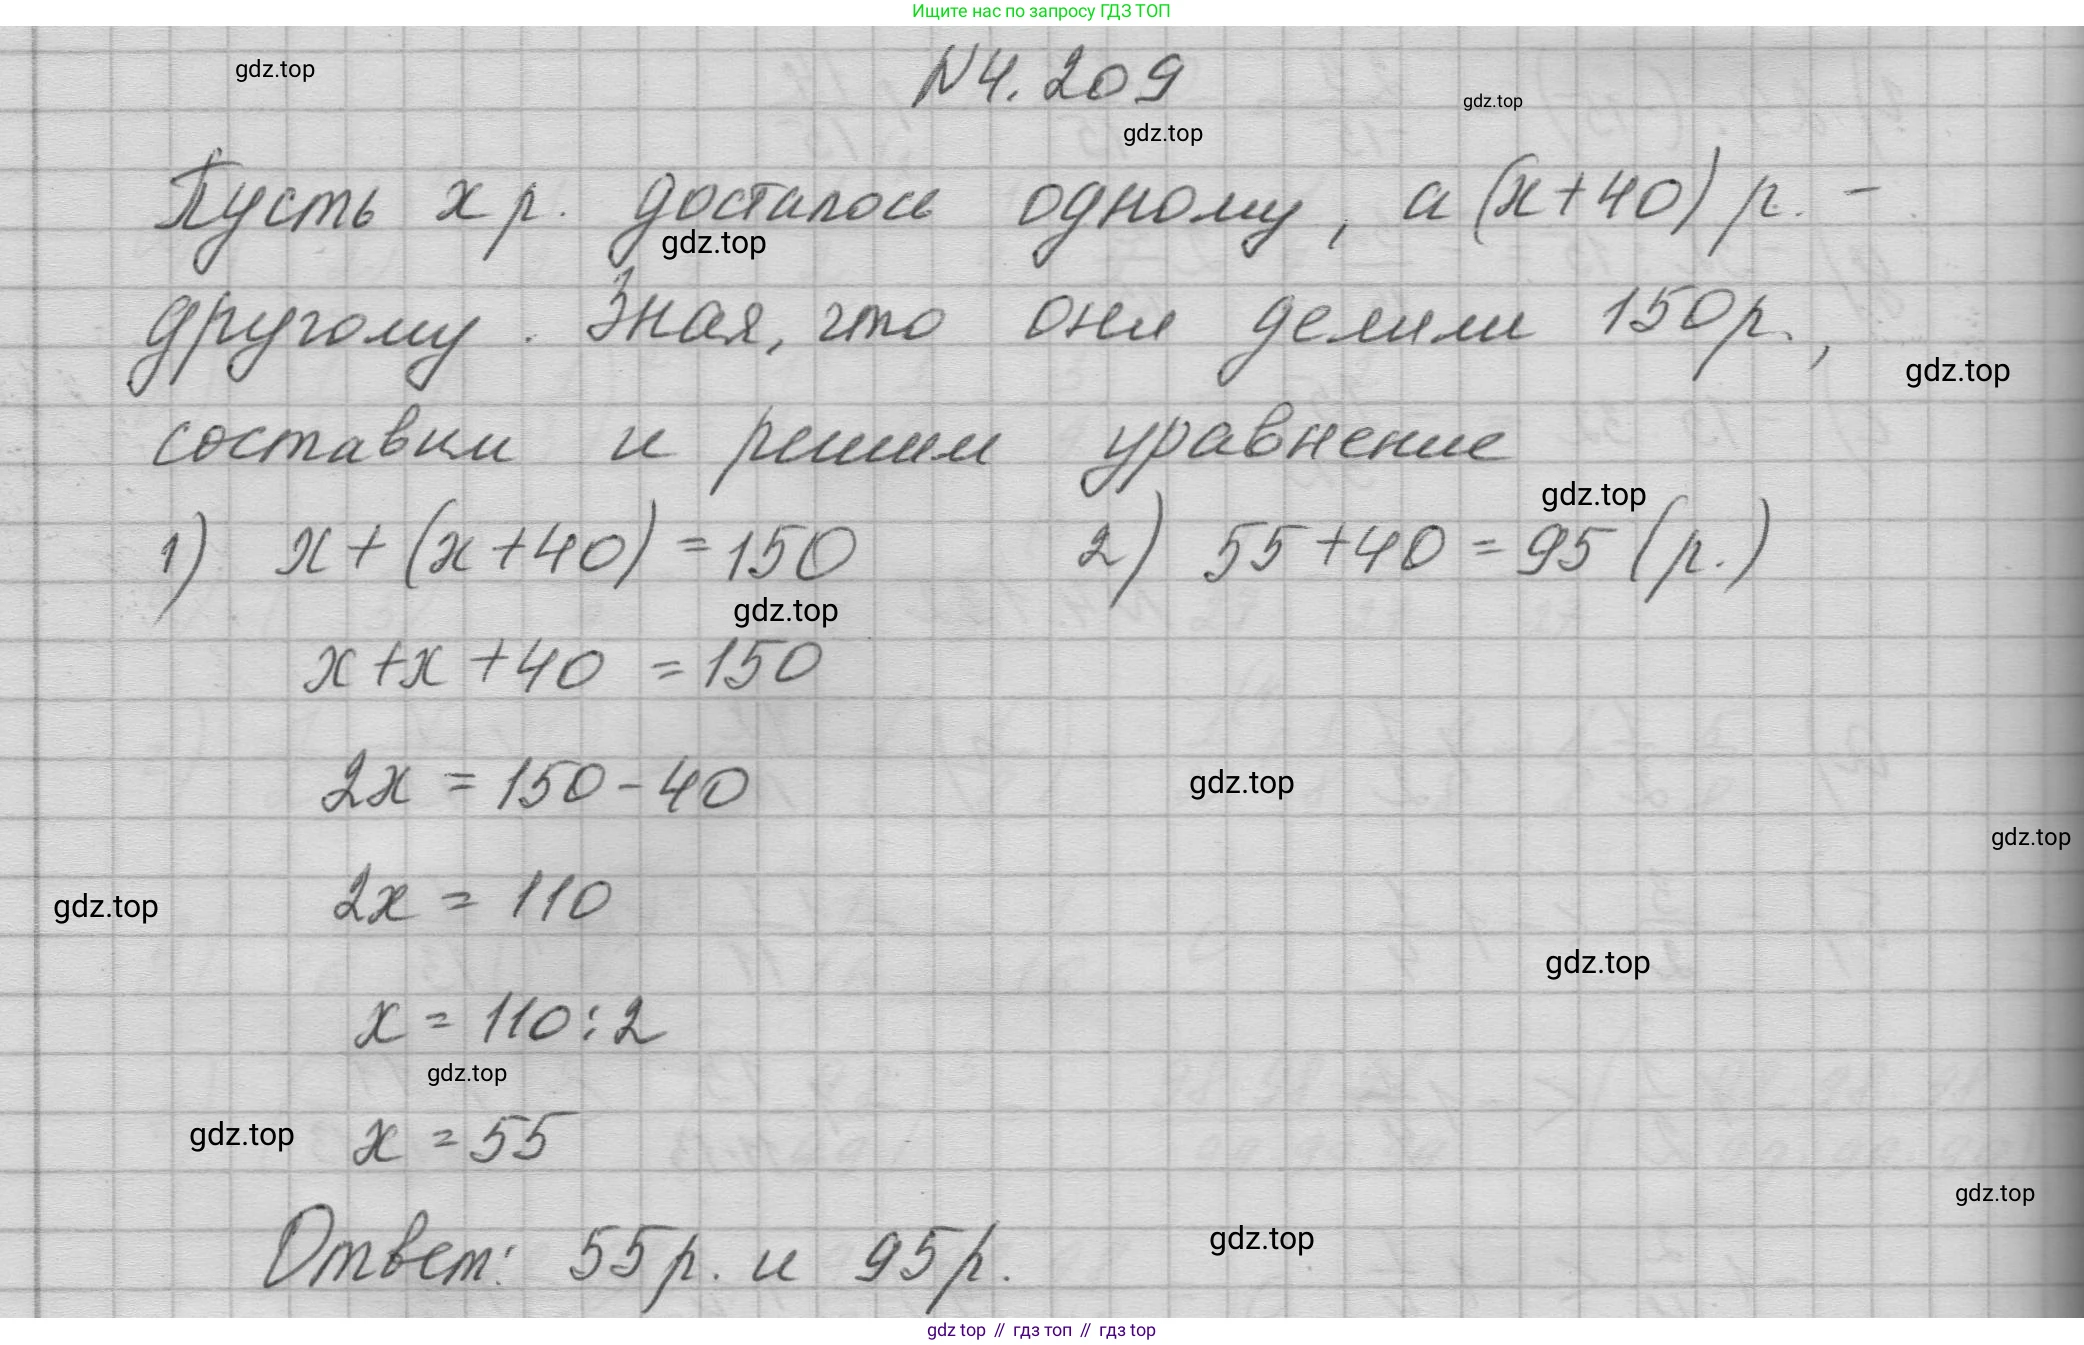 Ищите нас по запросу ГДЗ ТОП
gdz.top
N4.209
gdz.top
gdz.top
Пусть x р. досталось одному, а (x+40) р. -
gdz.top
другому. Зная, что они делили 150р.,
gdz.top
составим и решим уравнение
gdz.top
1) x+(x+40)=150
2) 55+40=95(р.)
gdz.top
x+x+40=150
2x=150-40
gdz.top
gdz.top
2x=110
gdz.top
gdz.top
x=110:2
gdz.top
gdz.top
x=55
gdz.top
Ответ: 55р. и 95р.
gdz.top
gdz top // гдз топ // гдз top